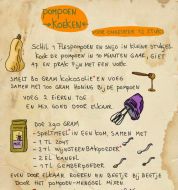 POMPOEN
KOEKEN
VOOR ONGEVEER 12 STUKS
SCHIL 1 FLESPOMPOEN EN SNIJD IN KLEINE STUKJES
KOOK DE POMPOEN IN 10 MINUTEN GAAR, GIET
AF EN PRAK FIJN MET EEN VORK
SMELT 80 GRAM KOKOSOLIE EN VOEG
SAMEN MET 100 GRAM HONING BIJ DE POMPOEN
VOEG 2 EIEREN TOE
EN MIX DOOR ELKAAR
DOE 240 GRAM
- SPELTMEEL IN EEN KOM, SAMEN MET
- 1 TL ZOUT
- 2 TL WIJNSTEENBAKPOEDER
- 2 EL KANEEL
- 1 TL GEMBERPOEDER
EVEN DOOR ELKAAR ROEREN EN BEETJE BIJ BEETJE
DOOR HET POMPOEN-MENGSEL MIXEN